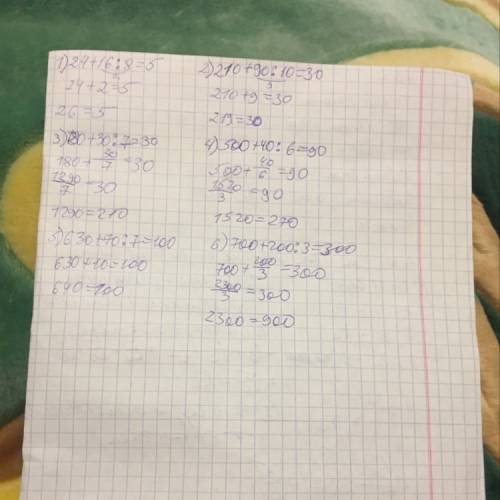 1) 24+16:8=5
24+2=5
26=5
2) 210+90:10=30
210+9=30
219=30
3) 180+30:7=30
180+30/7=30
1290/7=30
1290=210
4) 500+40:6=90
500+40/6=90
1520/3=90
1520=270
5) 630+70:7=100
630+10=100
640=100
6) 700+200:3=300
700+200/3=300
2300/3=300
2300=900